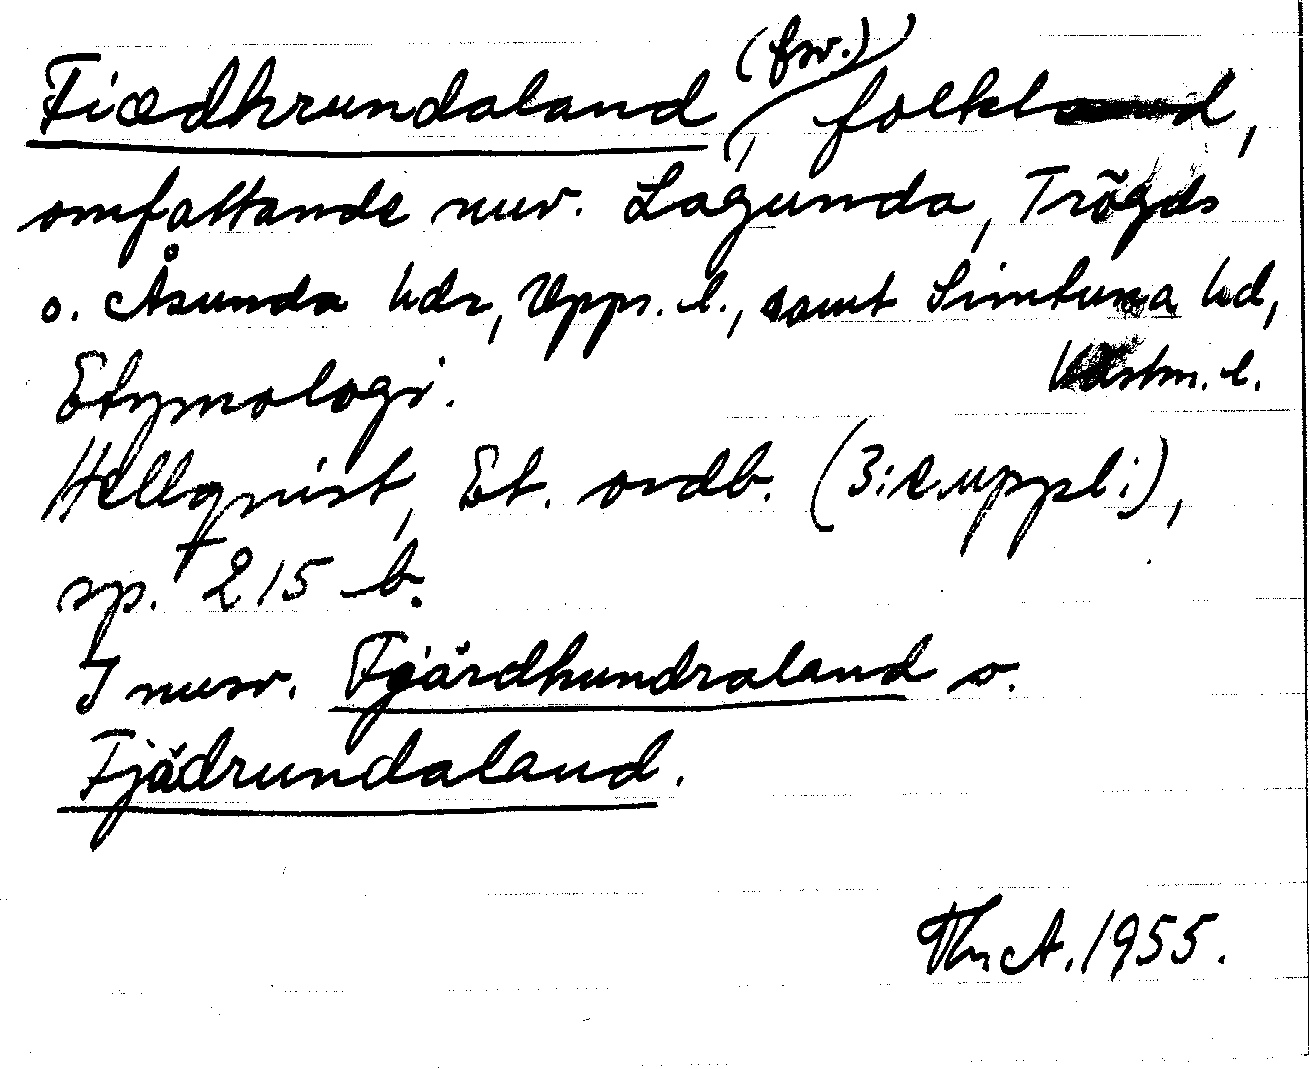 Fiædhrundaland (fsv.), folkland,
omfattande nuv. Lagunda, Trögds
o. Åsunda hdr, Upps. l., samt Simtuna hd,
Västm. l.
Etymologi.
Hellquist, Et. ordb. (3:e uppl.),
sp. 215 b.
I nusv. Fjärdhundraland o.
Fjädrundaland.
Thn A. 1955.